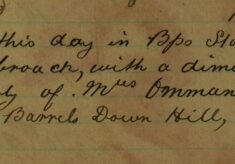 this day in Bps Sto
broach, with a dim
ty of Mrs Omman
Barrels Down Hill,